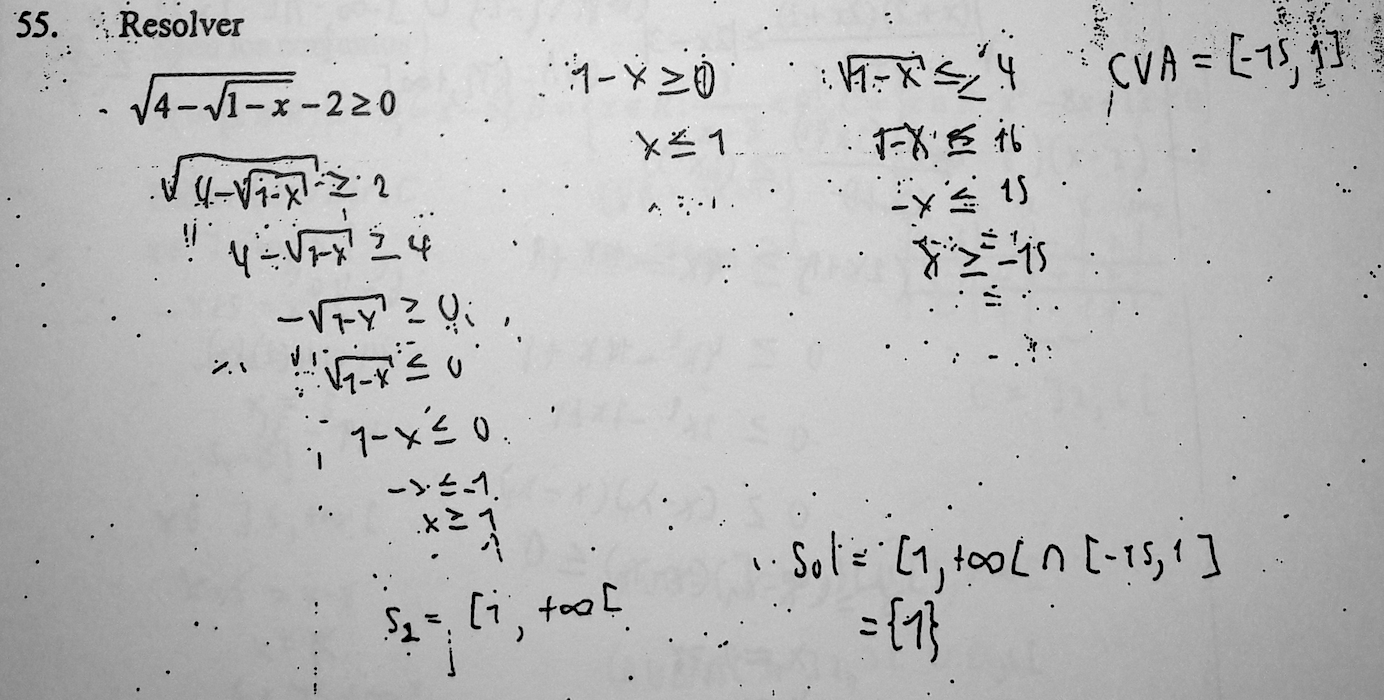 55. Resolver
√(4−√(1−x)) − 2 ≥ 0
√(4−√(1−x)) ≥ 2
4−√(1−x) ≥ 4
−√(1−x) ≥ 0
√(1−x) ≤ 0
1−x ≤ 0
−x ≤ −1
x ≥ 1
S₂ = [1, +∞[
1−x ≥ 0
x ≤ 1
√(1−x) ≤ 4
1−x ≤ 16
−x ≤ 15
x ≥ −15
CVA = [−15, 1]
Sol = [1, +∞[ ∩ [−15, 1]
= {1}